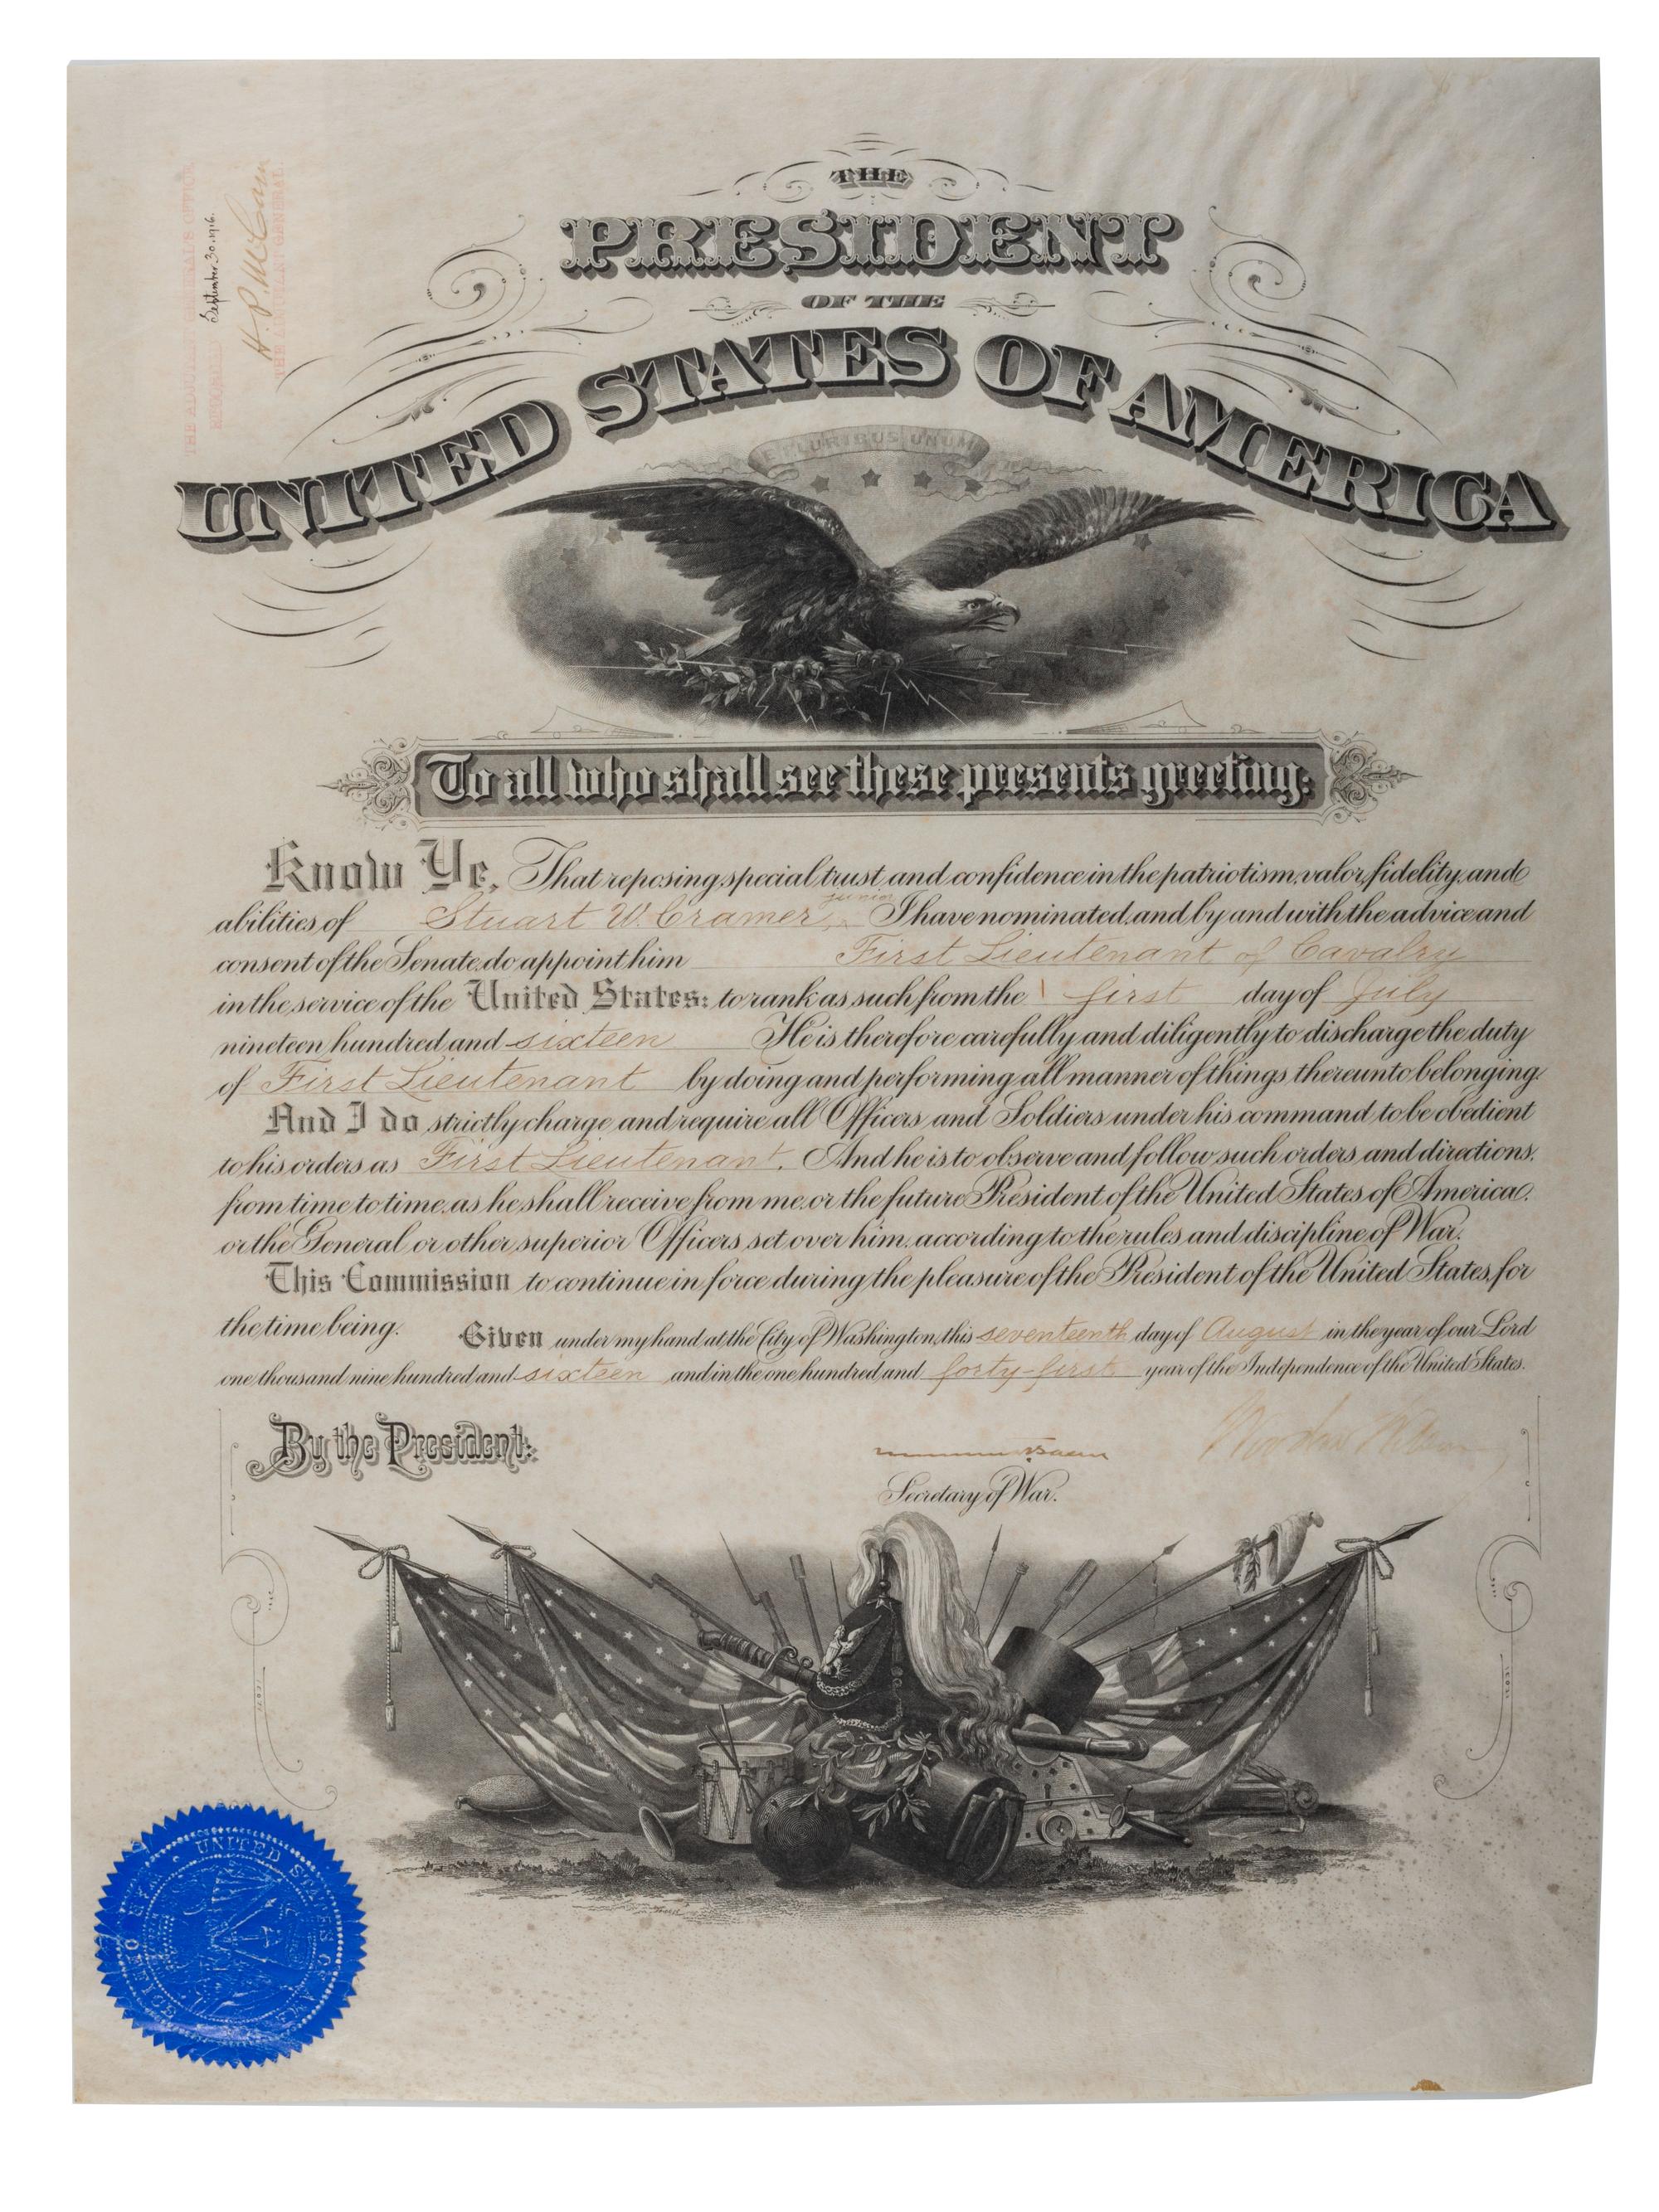 THE
PRESIDENT
OF THE
UNITED STATES OF AMERICA
E PLURIBUS UNUM
To all who shall see these presents greeting:
Know Ye, That reposing special trust and confidence in the patriotism, valor, fidelity, and
abilities of Stuart W. Cramer, junior, I have nominated, and by and with the advice and
consent of the Senate, do appoint him First Lieutenant of Cavalry
in the service of the United States: to rank as such from the first day of July
nineteen hundred and sixteen He is therefore carefully and diligently to discharge the duty
of First Lieutenant by doing and performing all manner of things thereunto belonging.
And I do strictly charge and require all Officers and Soldiers under his command to be obedient
to his orders as First Lieutenant. And he is to observe and follow such orders and directions,
from time to time, as he shall receive from me, or the future President of the United States of America,
or the General or other superior Officers set over him, according to the rules and discipline of War.
This Commission to continue in force during the pleasure of the President of the United States, for
the time being. Given under my hand at the City of Washington, this seventeenth day of August in the year of our Lord
one thousand nine hundred and sixteen and in the one hundred and forty-first year of the Independence of the United States.
By the President: Woodrow Wilson
Secretary of War.
THE ADJUTANT GENERAL'S OFFICE,
RECORDED September 30, 1916.
H. P. McCain
THE ADJUTANT GENERAL.
UNITED STATES OF AMERICA
OFFICE